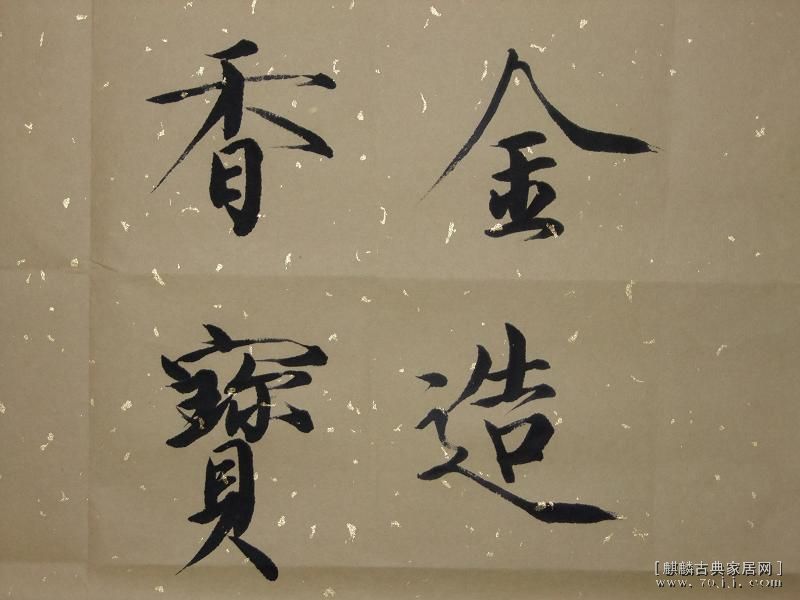 金造
香寶
[麒麟古典家居网]
www.70jj.com